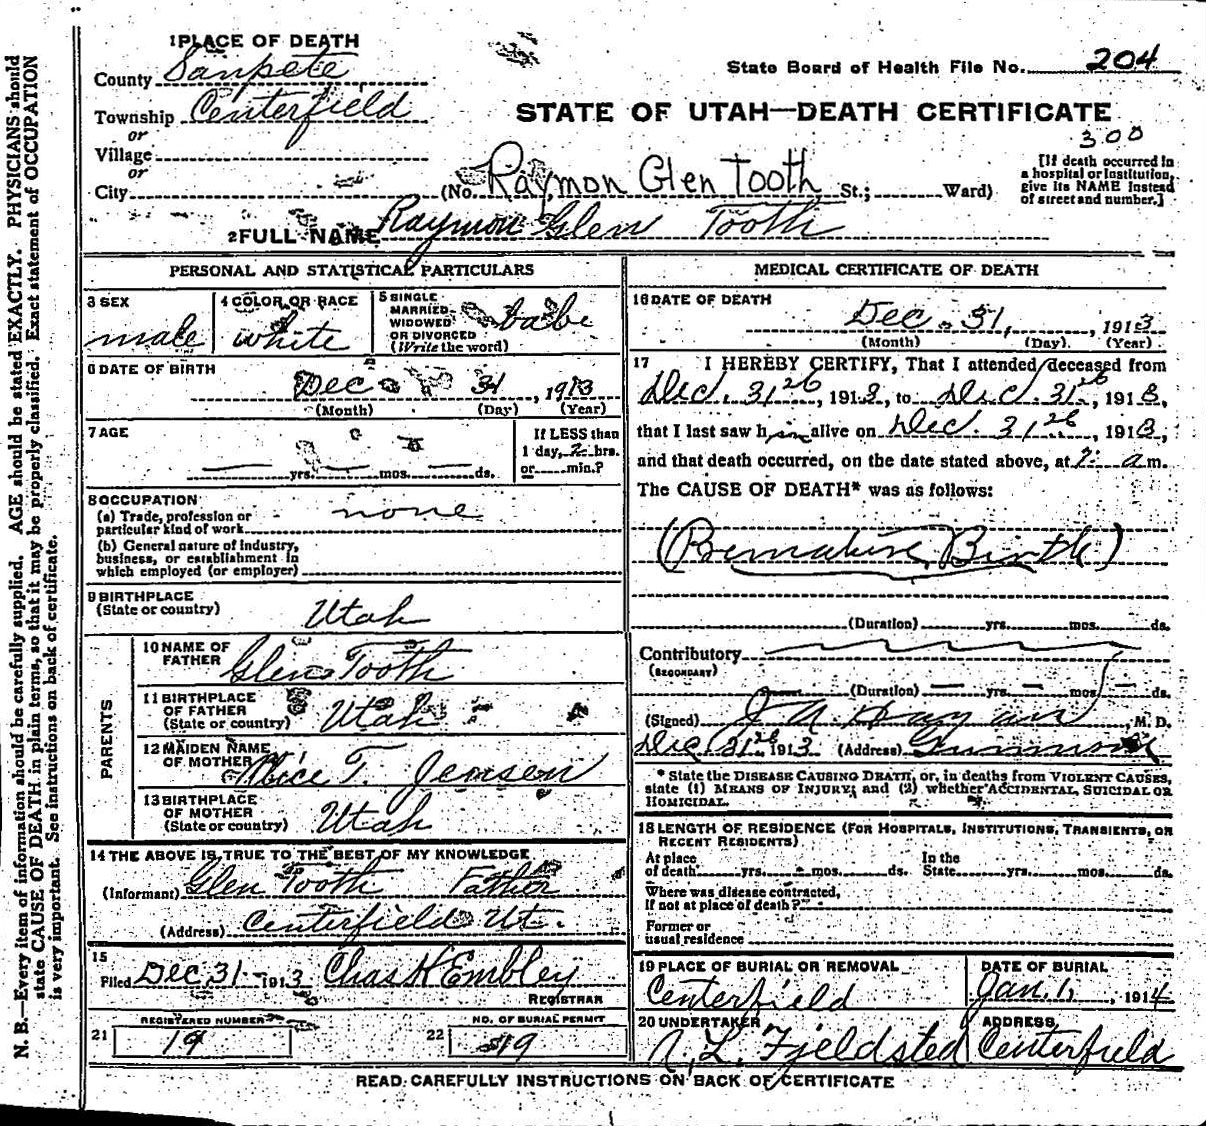 N. B.—Every item of information should be carefully supplied. AGE should be stated EXACTLY. PHYSICIANS should
state CAUSE OF DEATH in plain terms, so that it may be properly classified. Exact statement of OCCUPATION
is very important. See instructions on back of certificate.
1 PLACE OF DEATH
County Sanpete
State Board of Health File No. 204
Township Centerfield
STATE OF UTAH—DEATH CERTIFICATE
or
300
Village
or
City (No. Raymon Glen Tooth St.; Ward)
[If death occurred in
a hospital or institution,
give its NAME instead
of street and number.]
2 FULL NAME Raymon Glen Tooth
PERSONAL AND STATISTICAL PARTICULARS
3 SEX
male
4 COLOR OR RACE
white
5 SINGLE
MARRIED
WIDOWED
OR DIVORCED
(Write the word)
babe
6 DATE OF BIRTH
Dec 31, 1913
(Month) (Day) (Year)
7 AGE
yrs. mos. ds.
If LESS than
1 day, 2 hrs.
or min.?
8 OCCUPATION
(a) Trade, profession or
particular kind of work none
(b) General nature of industry,
business, or establishment in
which employed (or employer)
9 BIRTHPLACE
(State or country) Utah
PARENTS
10 NAME OF
FATHER Glen Tooth
11 BIRTHPLACE
OF FATHER
(State or country) Utah
12 MAIDEN NAME
OF MOTHER Alice T. Jensen
13 BIRTHPLACE
OF MOTHER
(State or country) Utah
14 THE ABOVE IS TRUE TO THE BEST OF MY KNOWLEDGE
(Informant) Glen Tooth Father
(Address) Centerfield Ut.
15
Filed Dec 31 1913 Chas H Embley
REGISTRAR
REGISTERED NUMBER
21 19
NO. OF BURIAL PERMIT
22 19
MEDICAL CERTIFICATE OF DEATH
16 DATE OF DEATH
Dec. 31, 1913
(Month) (Day) (Year)
17 I HEREBY CERTIFY, That I attended deceased from
Dec. 31, 1913, to Dec. 31, 1913,
that I last saw him alive on Dec. 31, 1913,
and that death occurred, on the date stated above, at 2 a m.
The CAUSE OF DEATH* was as follows:
(Premature Birth)
(Duration) yrs. mos. ds.
Contributory
(SECONDARY)
(Duration) yrs. mos. ds.
(Signed) , M. D.
Dec. 31 1913 (Address)
* State the DISEASE CAUSING DEATH, or, in deaths from VIOLENT CAUSES,
state (1) MEANS OF INJURY; and (2) whether ACCIDENTAL, SUICIDAL OR
HOMICIDAL.
18 LENGTH OF RESIDENCE (FOR HOSPITALS, INSTITUTIONS, TRANSIENTS, OR
RECENT RESIDENTS)
At place
of death yrs. mos. ds.
In the
State yrs. mos. ds.
Where was disease contracted,
If not at place of death?
Former or
usual residence
19 PLACE OF BURIAL OR REMOVAL
Centerfield
DATE OF BURIAL
Jan. 1, 1914
20 UNDERTAKER
A. L. Fjeldsted
ADDRESS
Centerfield
READ CAREFULLY INSTRUCTIONS ON BACK OF CERTIFICATE